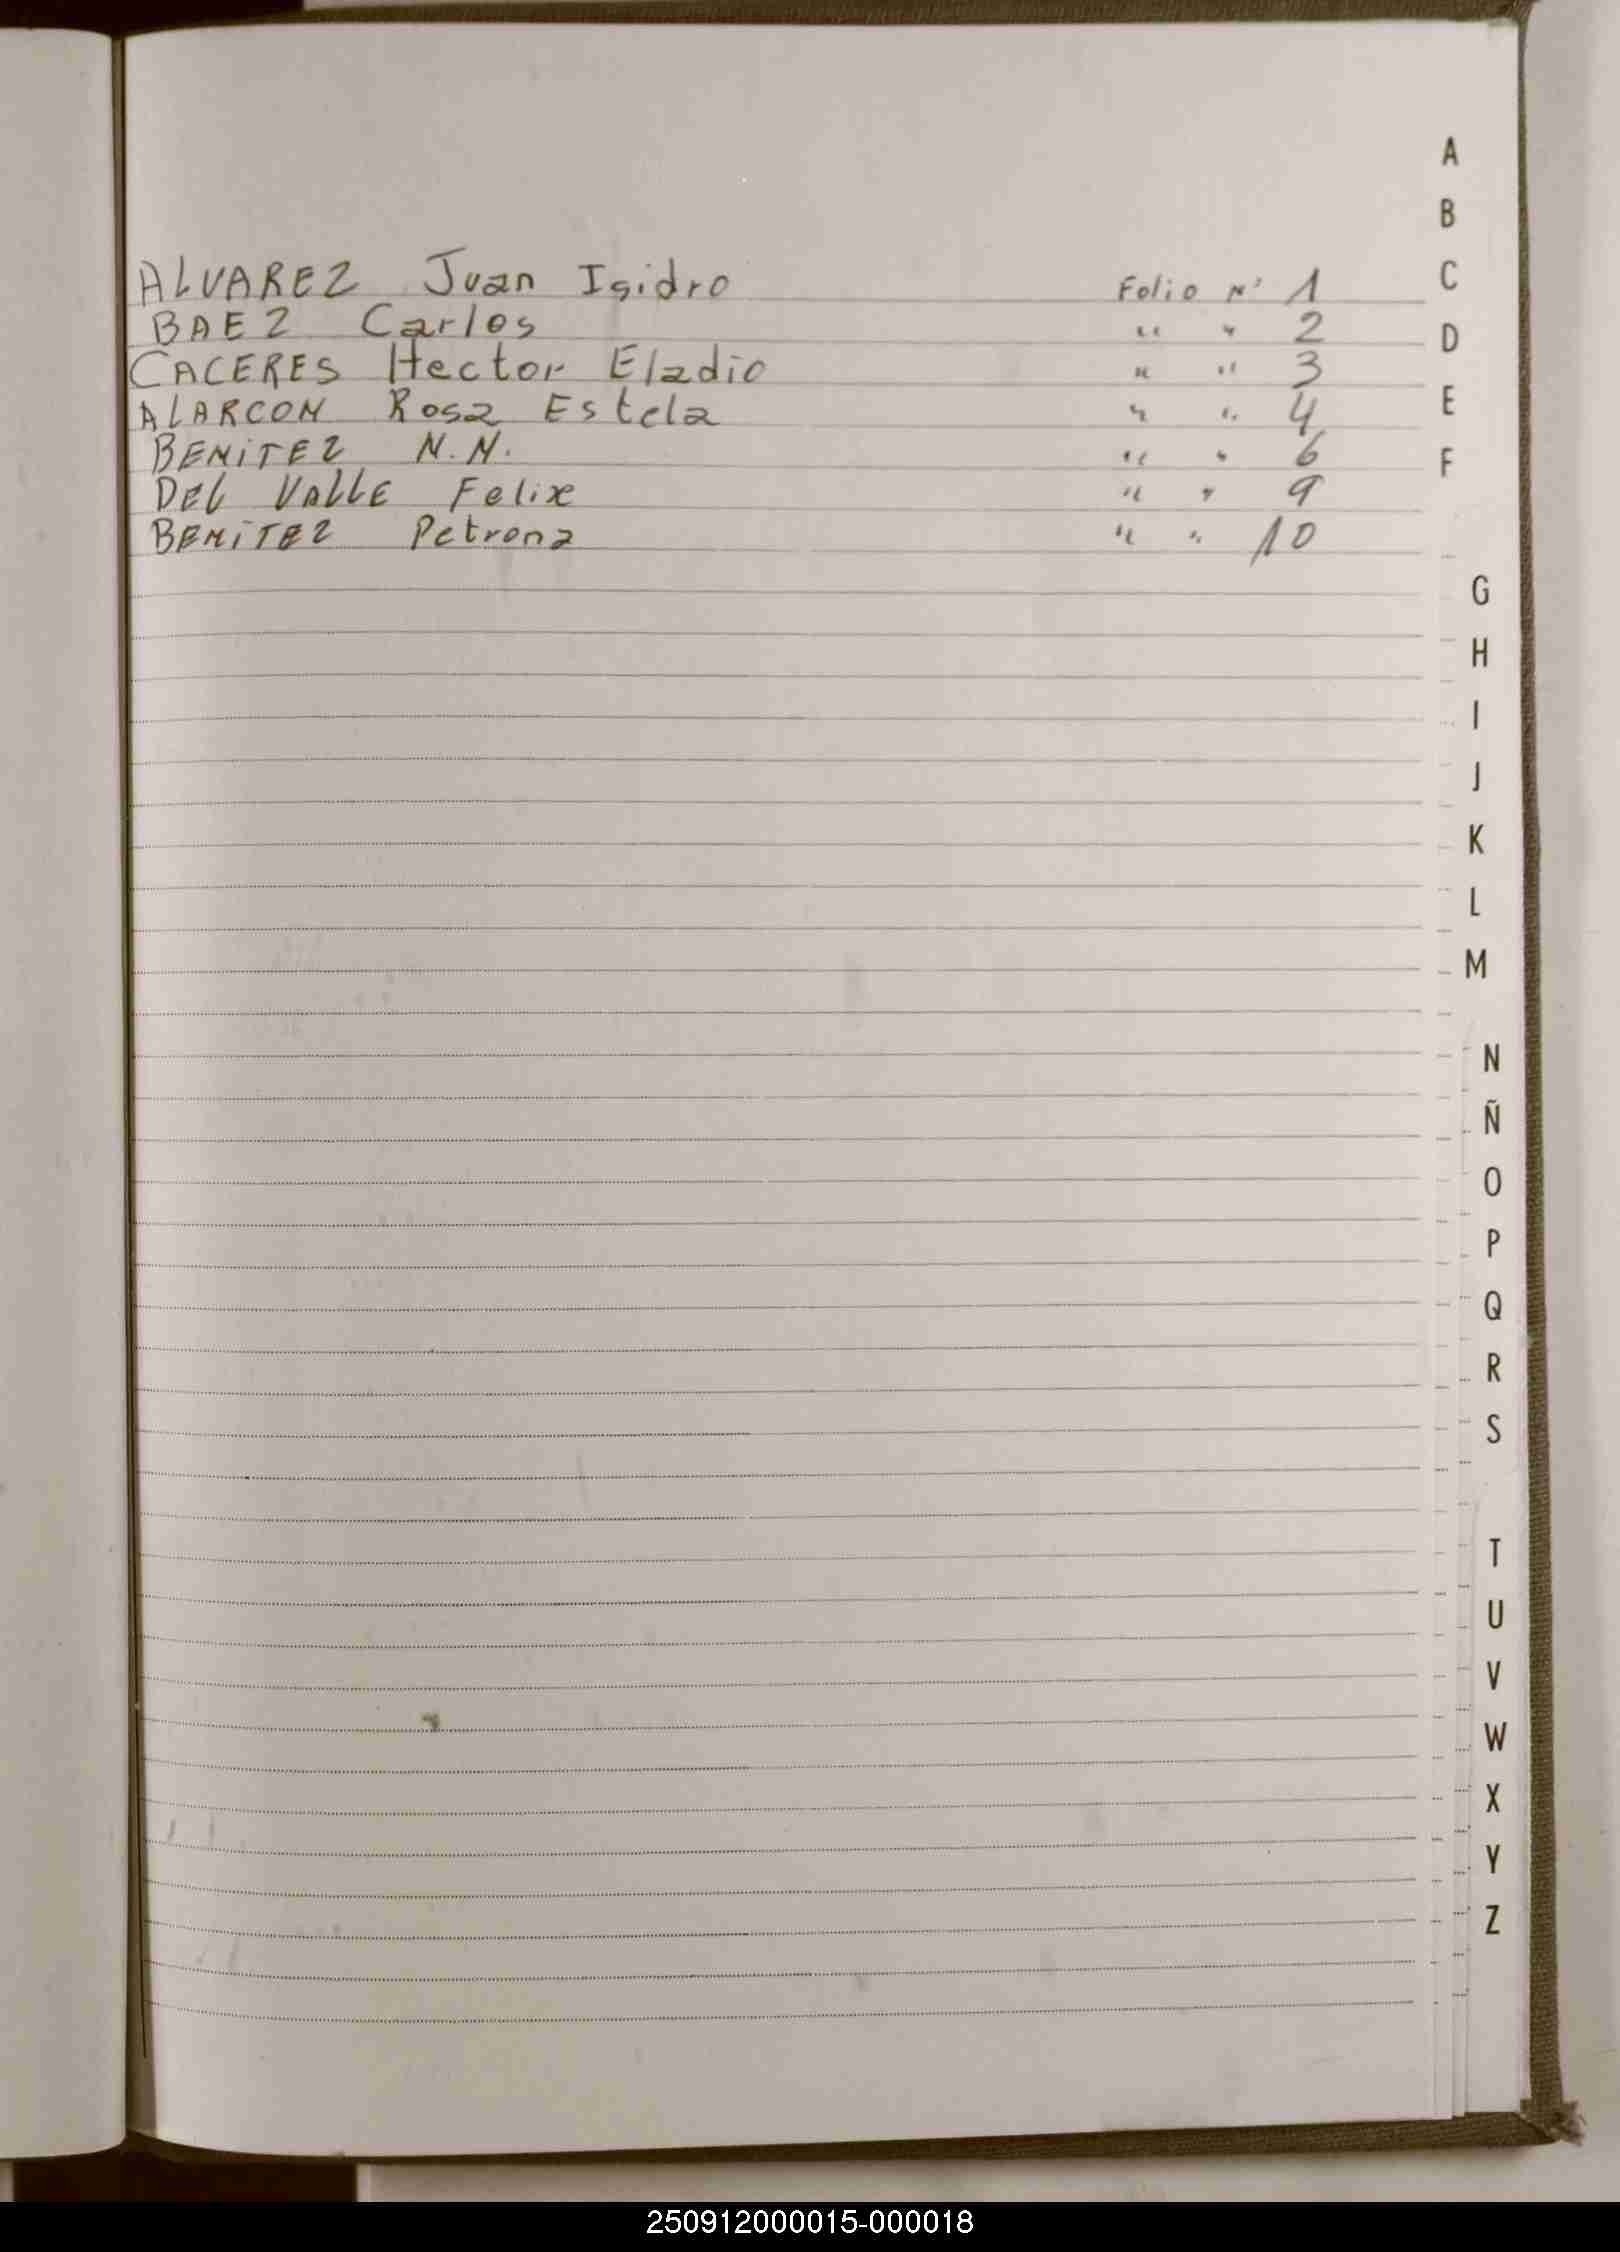 ALVAREZ Juan Isidro Folio N° 1
BAEZ Carlos " " 2
CACERES Hector Eladio " " 3
ALARCON Rosa Estela " " 4
BENITEZ N.N. " " 6
DEL VALLE Felix " " 9
BENITEZ Petrona " " 10
A
B
C
D
E
F
G
H
I
J
K
L
M
N
Ñ
O
P
Q
R
S
T
U
V
W
X
Y
Z
250912000015-000018